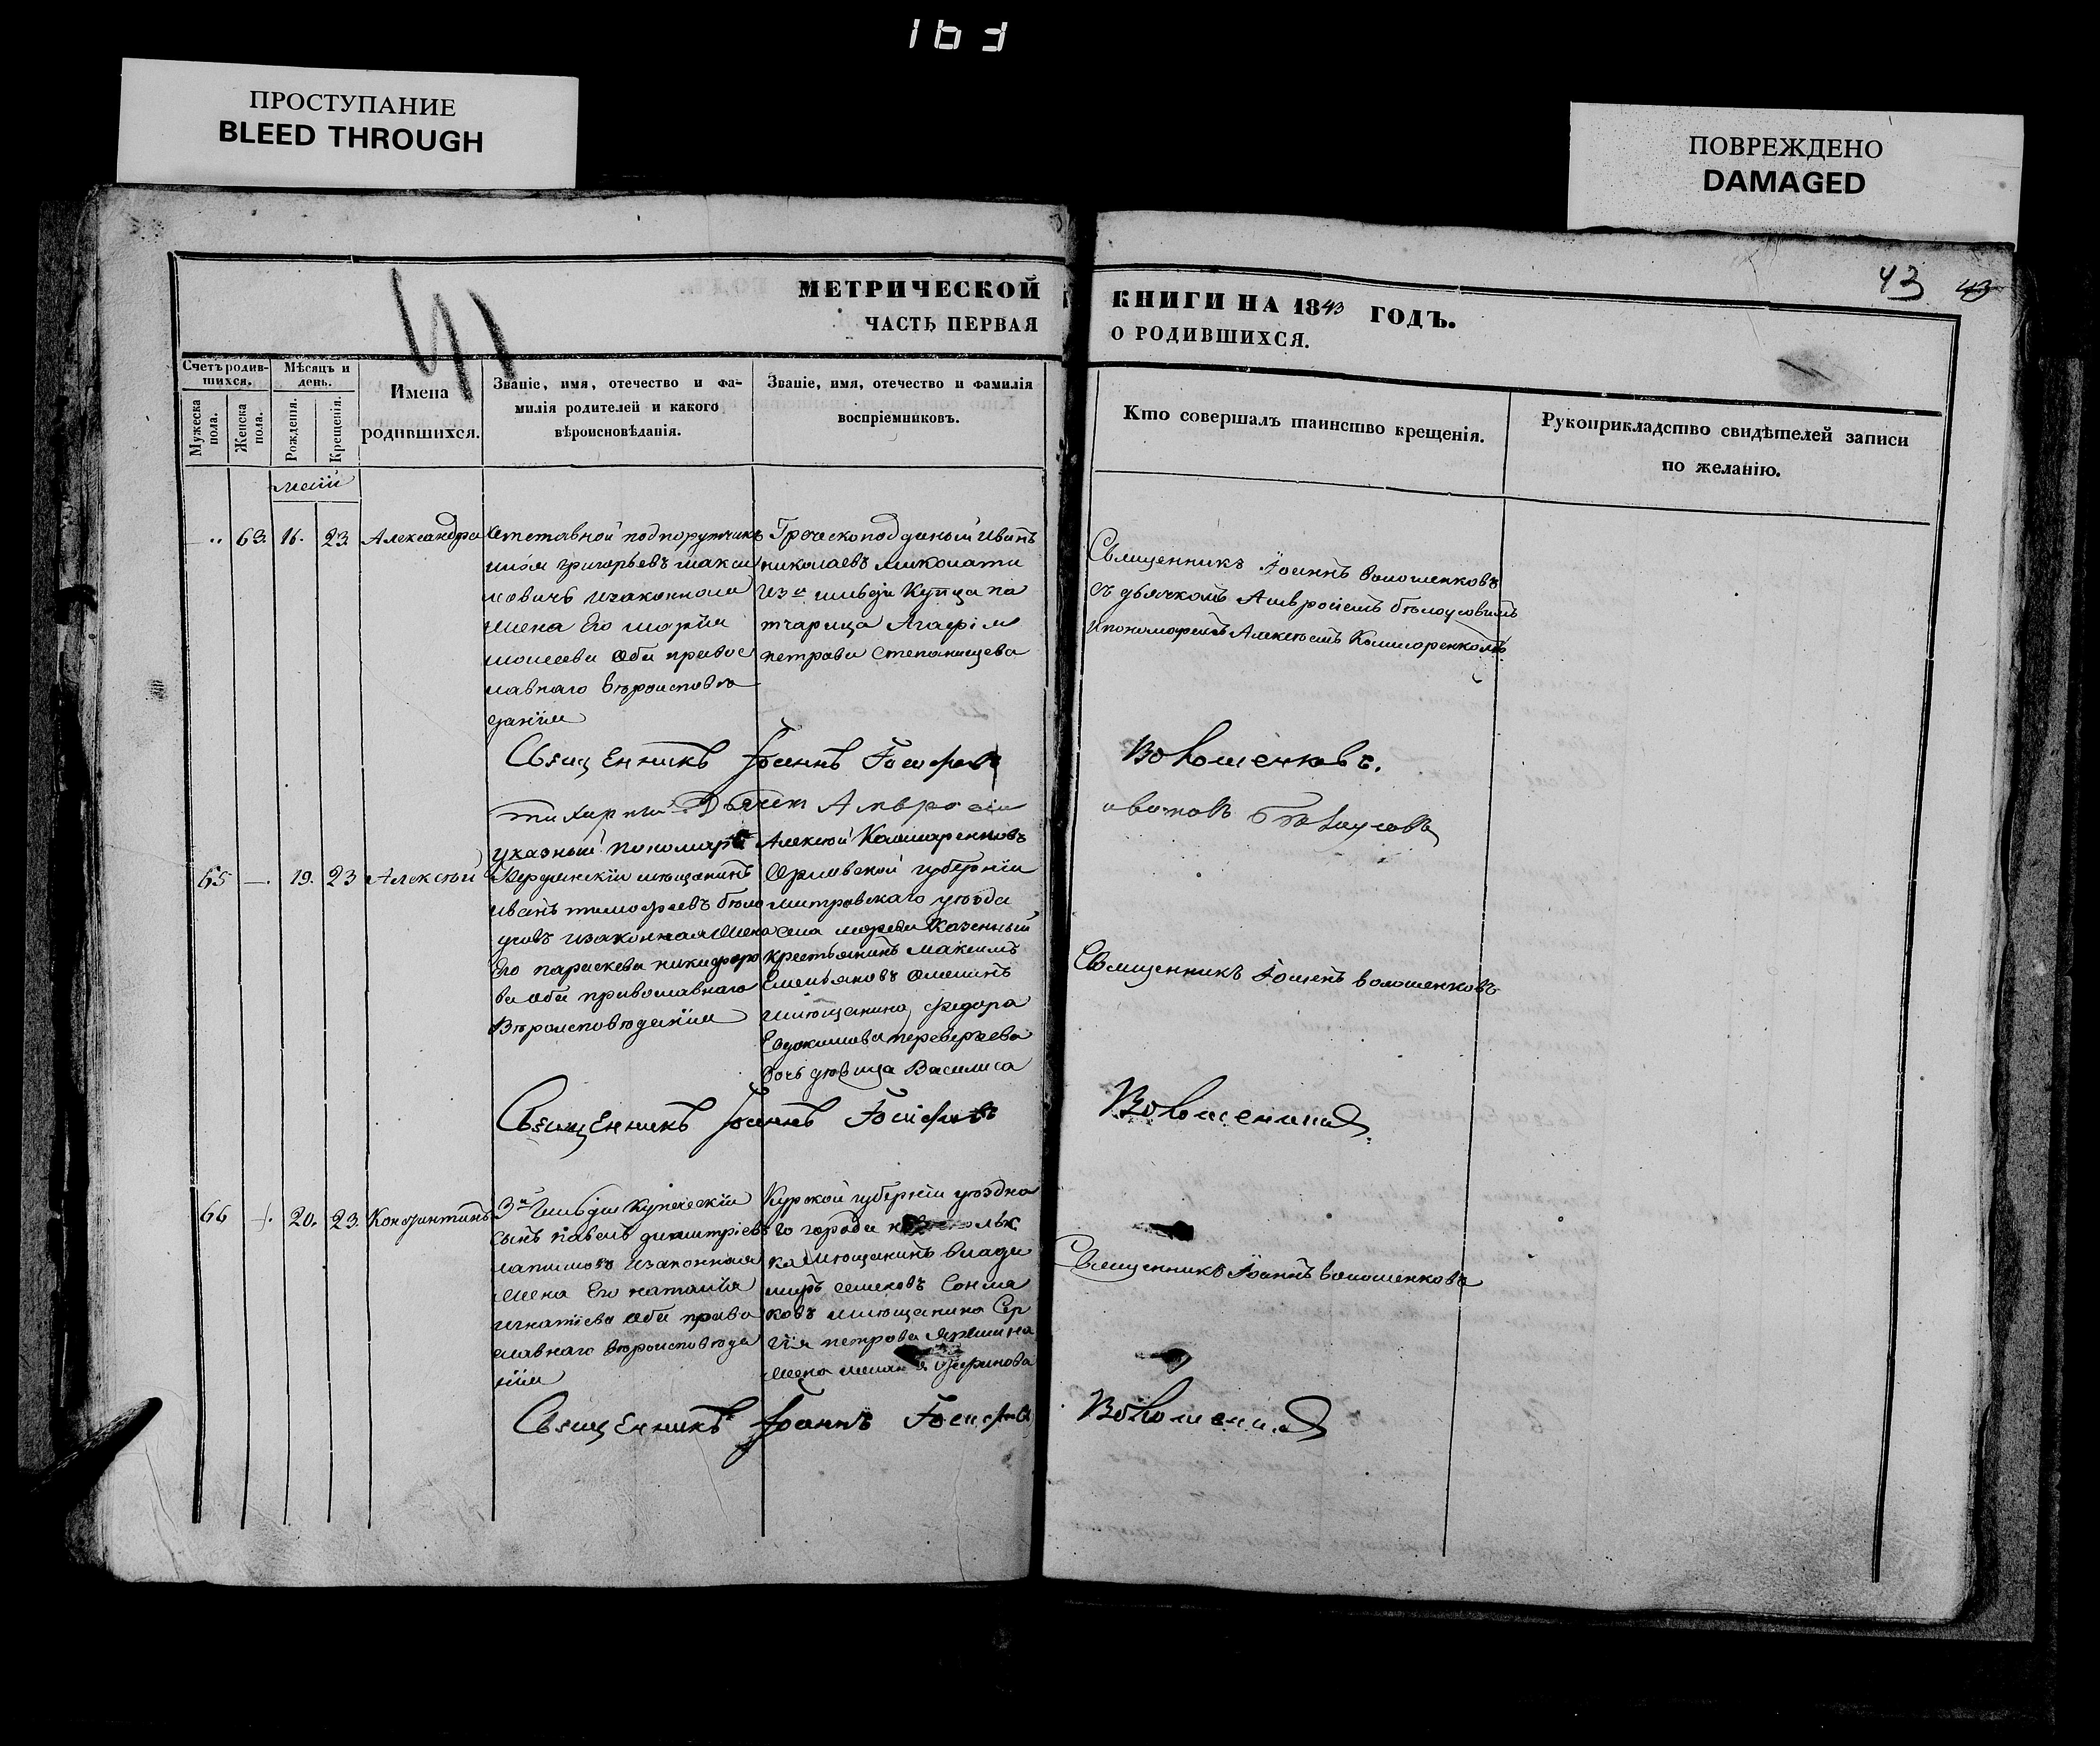 163
ПРОСТУПАНИЕ
BLEED THROUGH
ПОВРЕЖДЕНО
DAMAGED
43 43
41
МЕТРИЧЕСКОЙ
ЧАСТЬ ПЕРВАЯ
КНИГИ НА 1843 ГОДЪ.
О РОДИВШИХСЯ.
Счетъ родив-
шихся.
Мужеска пола.
Женска пола.
Мѣсяцъ и
день.
Рожденія.
Крещенія.
Имена
родившихся.
Званіе, имя, отечество и фа-
милія родителей и какого
вѣроисповѣданія.
Званіе, имя, отечество и фамилія
воспріемниковъ.
Кто совершалъ таинство крещенія.
Рукоприкладство свидѣтелей записи
по желанію.
маій
63. 16. 23. Александра
Отставной подпорутчикъ
григорьевъ макси
мовичъ изаконная
жена Его марія
моисеева оба правос
лавнаго вѣроисповѣ
данія
Греческоподданый иванъ
николаевъ
гильдіи Купца
Агафія
петрова
Священникъ Іоаннъ волошенковъ
съ дьячкомъ Амвросіемъ бѣлоусовымъ
ипономаремъ Алексѣемъ Кошмаренкомъ
Священникъ Іоаннъ Іосифовъ
Волошенковъ.
Дьячекъ Амвросій
ивановъ Бѣлоусовъ
указный пономарь Алексѣй Кошмаренковъ
65 —. 19. 23 Алексѣй
Бердянскій мѣщанинъ
иванъ тимофеевъ бѣло
усовъ изаконная жена
Его параскева никифоро
ва оба православнаго
Вѣроисповѣданія
Орловской губерніи
митровскаго уѣзда
села Казенный
крестьянинъ максимъ
Емельяновъ
мѣщанина федора
Евдокимова переверзева
дочь дѣвица Василиса
Священникъ Іоаннъ волошенковъ
Священникъ Іоаннъ Іосифовъ
66 20. 23. Констянтинъ
3й Гильдіи Купеческій
сынъ павелъ димитріевъ
изаконная
жена Его наталія
игнатіева оба право
славнаго вѣроисповѣда
нія
Курской губерніи уѣздна
го города
мѣщанинъ влади
миръ
ковъ мѣщанина Сер
гія петрова
жена
Священникъ Іоаннъ волошенковъ
Священникъ Іоаннъ Іосифовъ